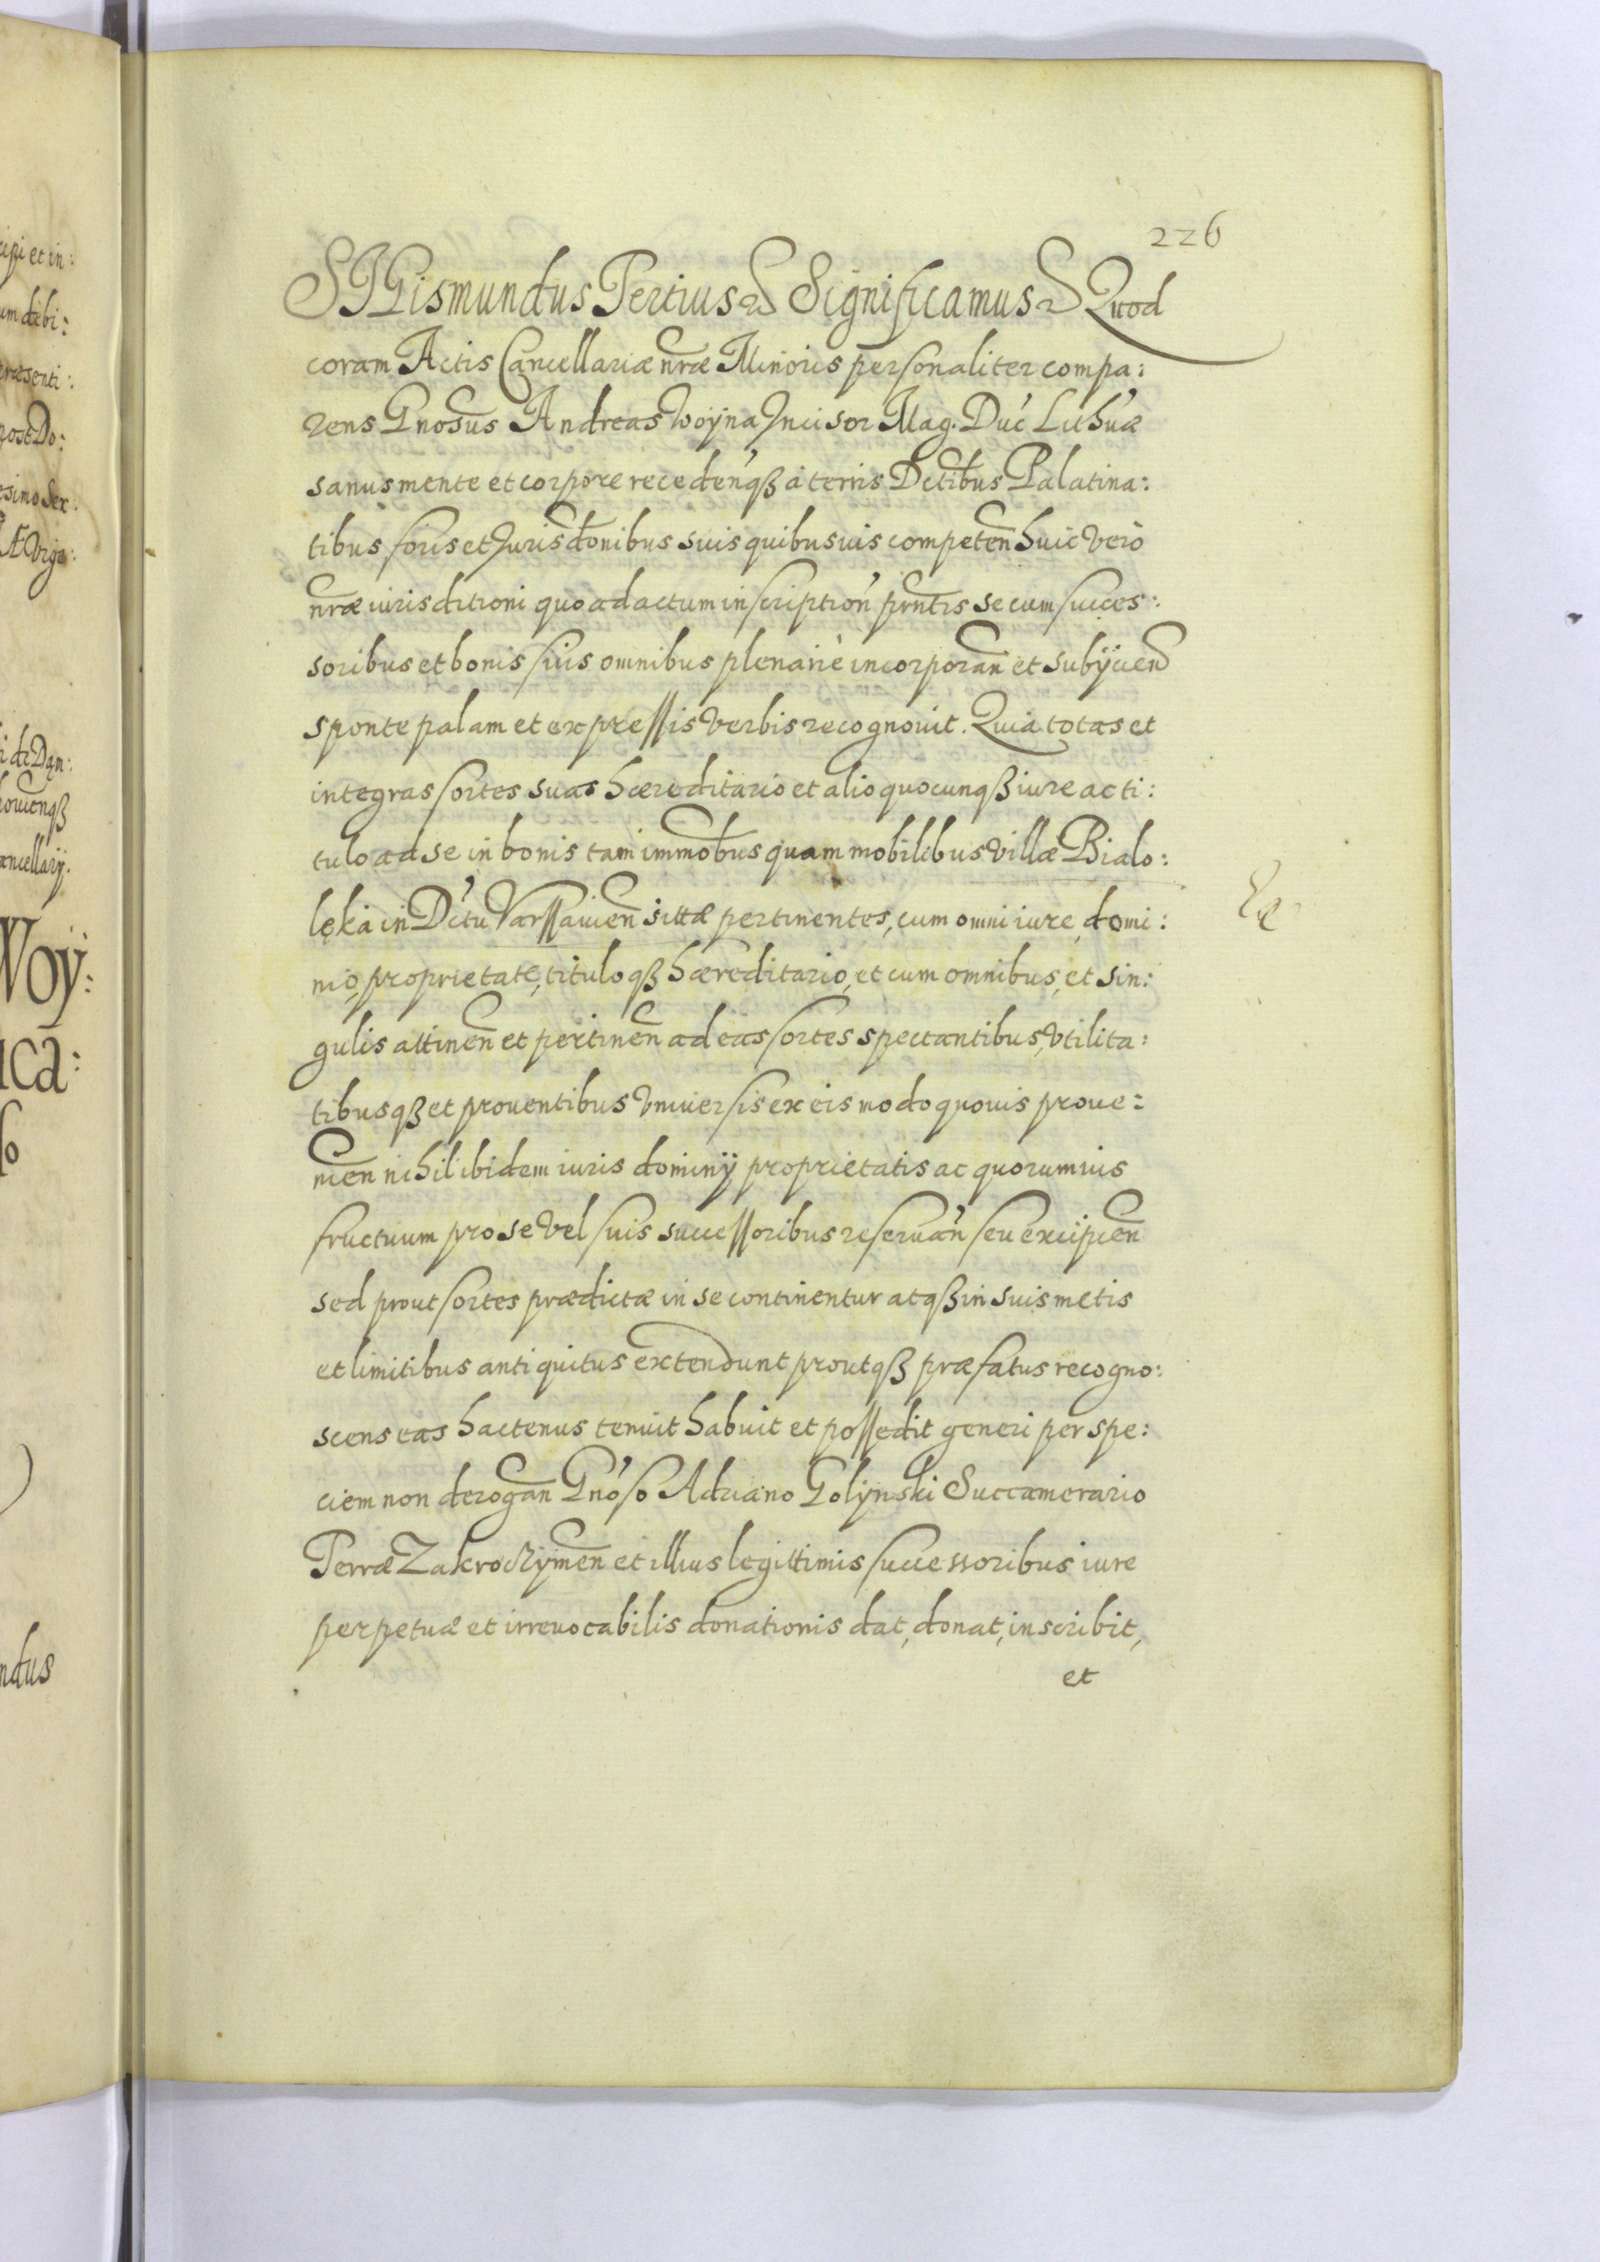 226
SIGismundus Tertius Significamus Quod
coram Actis Cancellariæ nræ Minoris personaliter compa:
rens Gnosus Andreas Woyna Incisor Mag. Duc Lithuæ
sanus mente et corpore recedenqß à terris Dctibus Palatina:
tibus foris et Jurisdonibus suis quibusuis competen huic verò
nræ iurisditioni quo ad actum inscription prntis se cum succes:
soribus et bonis suis omnibus plenariè incorporan et subijcien
sponte palam et expressis verbis recognouit. Quia totas et
integras sortes suas hæreditario et alio quocunqß iure ac ti:
tulo ad se in bonis tam immobus quam mobilibus villæ Bialo:
lęka in Dctu Varssauien sittæ pertinentes, cum omni iure, domi:
nio, proprietate, tituloqß hæreditario, et cum omnibus, et sin:
gulis attinen et pertinen ad eas sortes spectantibus, vtilita:
tibusqß et prouentibus vniuersis ex eis modo quouis proue:
nien nihil ibidem iuris dominij proprietatis ac quorumuis
fructuum pro se vel suis successoribus reseruan seu excipien
sed prout sortes prædictæ in se continentur atqß in suis metis
et limitibus antiquitus extendunt proutqß præfatus recogno:
scens eas hactenus tenuit habuit et possedit generi per spe:
ciem non derogan Gnoso Adriano Golynski Succamerario
Terræ Zakroczymen et illius legittimis successoribus iure
perpetuæ et irreuocabilis donationis dat, donat, inscribit,
et